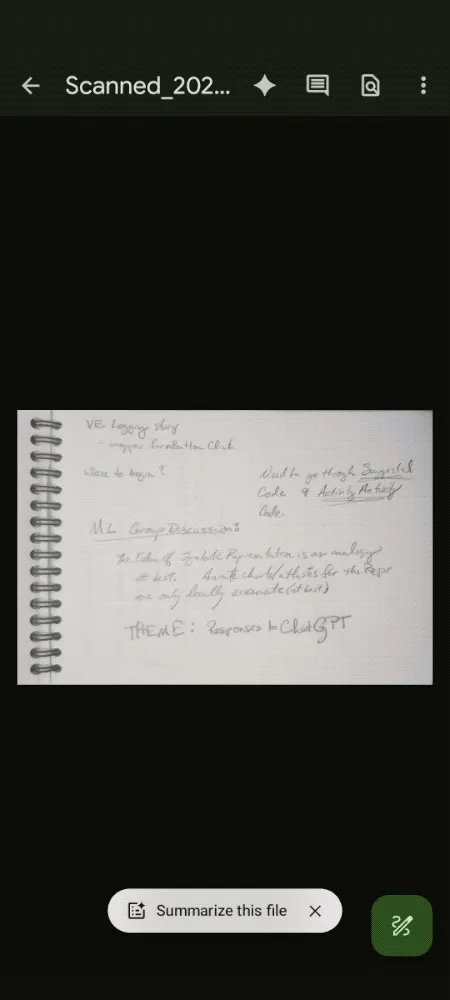 Scanned_202...
VE Logging story
- wrapper FormButton Click
Where to begin?
Need to go through Suggested
Code & Activity Activity
Code.
ML Group Discussion:
the Idea of Symbolic Representation is an analogy
at best. charts/atlases for the Repr
are only locally accurate (at best)
THEME: Responses to ChatGPT
Summarize this file